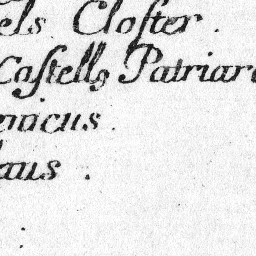 els Closter.
Castells Patriar
enicus.
aus.